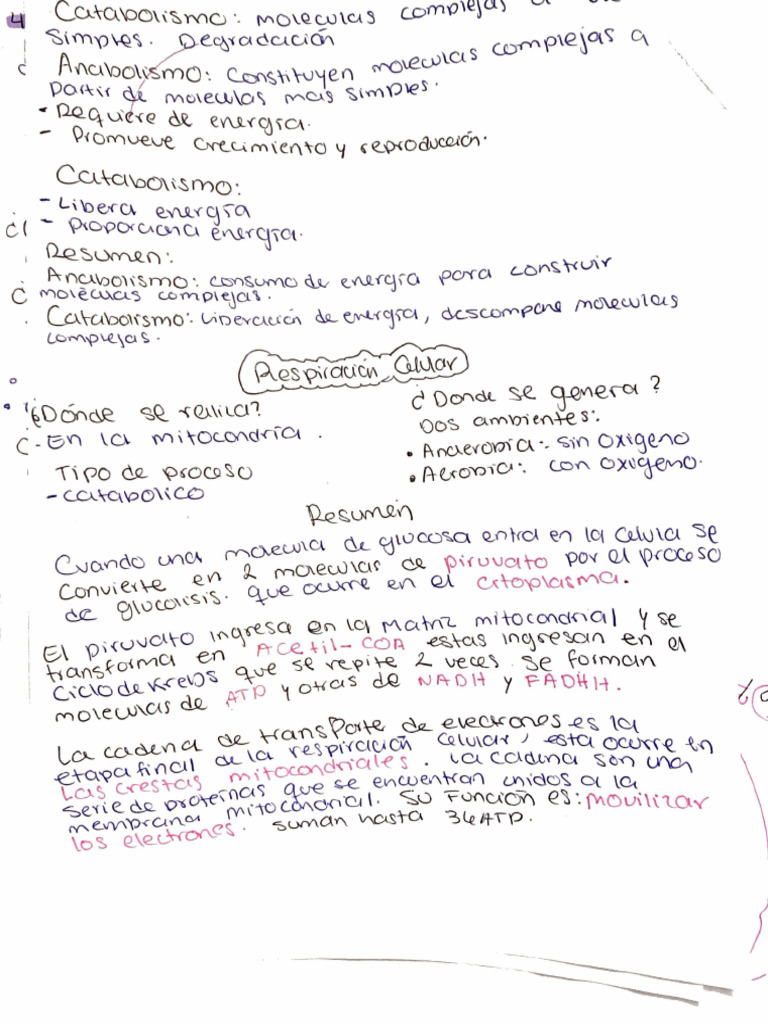 4 Catabolismo: moleculas complejas a
simples. Degradación
Anabolismo: Constituyen moleculas complejas a
partir de moleculas mas simples.
- Requiere de energía.
- Promueve crecimiento y reproducción.
Catabolismo:
- Libera energía
- Proporciona energía.
Resumen:
Anabolismo: consumo de energía para construir
moléculas complejas.
Catabolismo: Liberación de energía, descompone moleculas
complejas.
Respiración Celular
¿Dónde se realiza?
- En la mitocondria.
Tipo de proceso
- catabolico
¿Donde se genera?
Dos ambientes:
• Anaerobia: sin oxigeno
• Aerobia: con oxigeno.
Resumen
Cuando una molecula de glucosa entra en la celula se
convierte en 2 moleculas de piruvato por el proceso
de glucolisis. que ocurre en el citoplasma.
El piruvato ingresa en la matriz mitocondrial y se
transforma en Acetil-COA estas ingresan en el
Ciclo de Krebs que se repite 2 veces. Se forman
moleculas de ATP y otras de NADH y FADHH.
La cadena de transporte de electrones es la
etapa final de la respiración celular, esta ocurre en
Las crestas mitocondriales. La cadena son una
serie de proteinas que se encuentran unidos a la
membrana mitocondrial. Su función es: movilizar
los electrones. suman hasta 34 ATP.